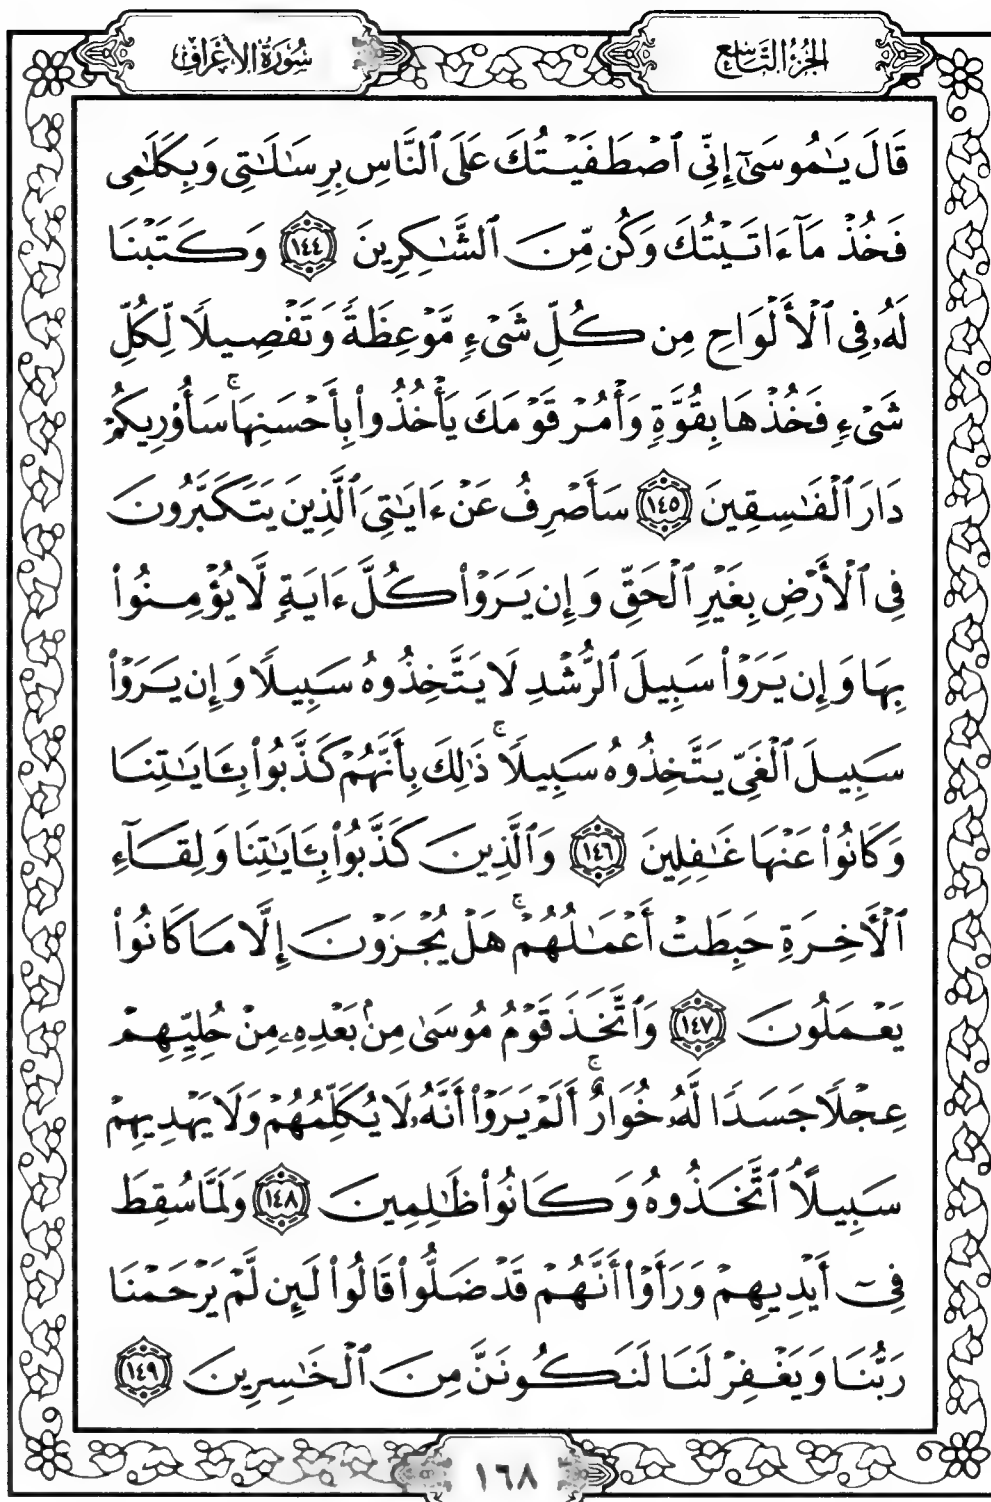 سُورَةُ الأَعْرَافِ
الجُزْءُ التَّاسِعُ
قَالَ يَٰمُوسَىٰٓ إِنِّي ٱصْطَفَيْتُكَ عَلَى ٱلنَّاسِ بِرِسَٰلَٰتِي وَبِكَلَٰمِي
فَخُذْ مَآ ءَاتَيْتُكَ وَكُن مِّنَ ٱلشَّٰكِرِينَ ١٤٤ وَكَتَبْنَا
لَهُۥ فِي ٱلْأَلْوَاحِ مِن كُلِّ شَيْءٍ مَّوْعِظَةً وَتَفْصِيلًا لِّكُلِّ
شَيْءٍ فَخُذْهَا بِقُوَّةٍ وَأْمُرْ قَوْمَكَ يَأْخُذُوا۟ بِأَحْسَنِهَاۚ سَأُو۟رِيكُمْ
دَارَ ٱلْفَٰسِقِينَ ١٤٥ سَأَصْرِفُ عَنْ ءَايَٰتِيَ ٱلَّذِينَ يَتَكَبَّرُونَ
فِي ٱلْأَرْضِ بِغَيْرِ ٱلْحَقِّ وَإِن يَرَوْا۟ كُلَّ ءَايَةٍ لَّا يُؤْمِنُوا۟
بِهَا وَإِن يَرَوْا۟ سَبِيلَ ٱلرُّشْدِ لَا يَتَّخِذُوهُ سَبِيلًا وَإِن يَرَوْا۟
سَبِيلَ ٱلْغَيِّ يَتَّخِذُوهُ سَبِيلًاۚ ذَٰلِكَ بِأَنَّهُمْ كَذَّبُوا۟ بِـَٔايَٰتِنَا
وَكَانُوا۟ عَنْهَا غَٰفِلِينَ ١٤٦ وَٱلَّذِينَ كَذَّبُوا۟ بِـَٔايَٰتِنَا وَلِقَآءِ
ٱلْأَخِرَةِ حَبِطَتْ أَعْمَٰلُهُمْۚ هَلْ يُجْزَوْنَ إِلَّا مَا كَانُوا۟
يَعْمَلُونَ ١٤٧ وَٱتَّخَذَ قَوْمُ مُوسَىٰ مِنۢ بَعْدِهِۦ مِنْ حُلِيِّهِمْ
عِجْلًا جَسَدًا لَّهُۥ خُوَارٌۚ أَلَمْ يَرَوْا۟ أَنَّهُۥ لَا يُكَلِّمُهُمْ وَلَا يَهْدِيهِمْ
سَبِيلًاۘ ٱتَّخَذُوهُ وَكَانُوا۟ ظَٰلِمِينَ ١٤٨ وَلَمَّا سُقِطَ
فِيٓ أَيْدِيهِمْ وَرَأَوْا۟ أَنَّهُمْ قَدْ ضَلُّوا۟ قَالُوا۟ لَئِن لَّمْ يَرْحَمْنَا
رَبُّنَا وَيَغْفِرْ لَنَا لَنَكُونَنَّ مِنَ ٱلْخَٰسِرِينَ ١٤٩
١٦٨